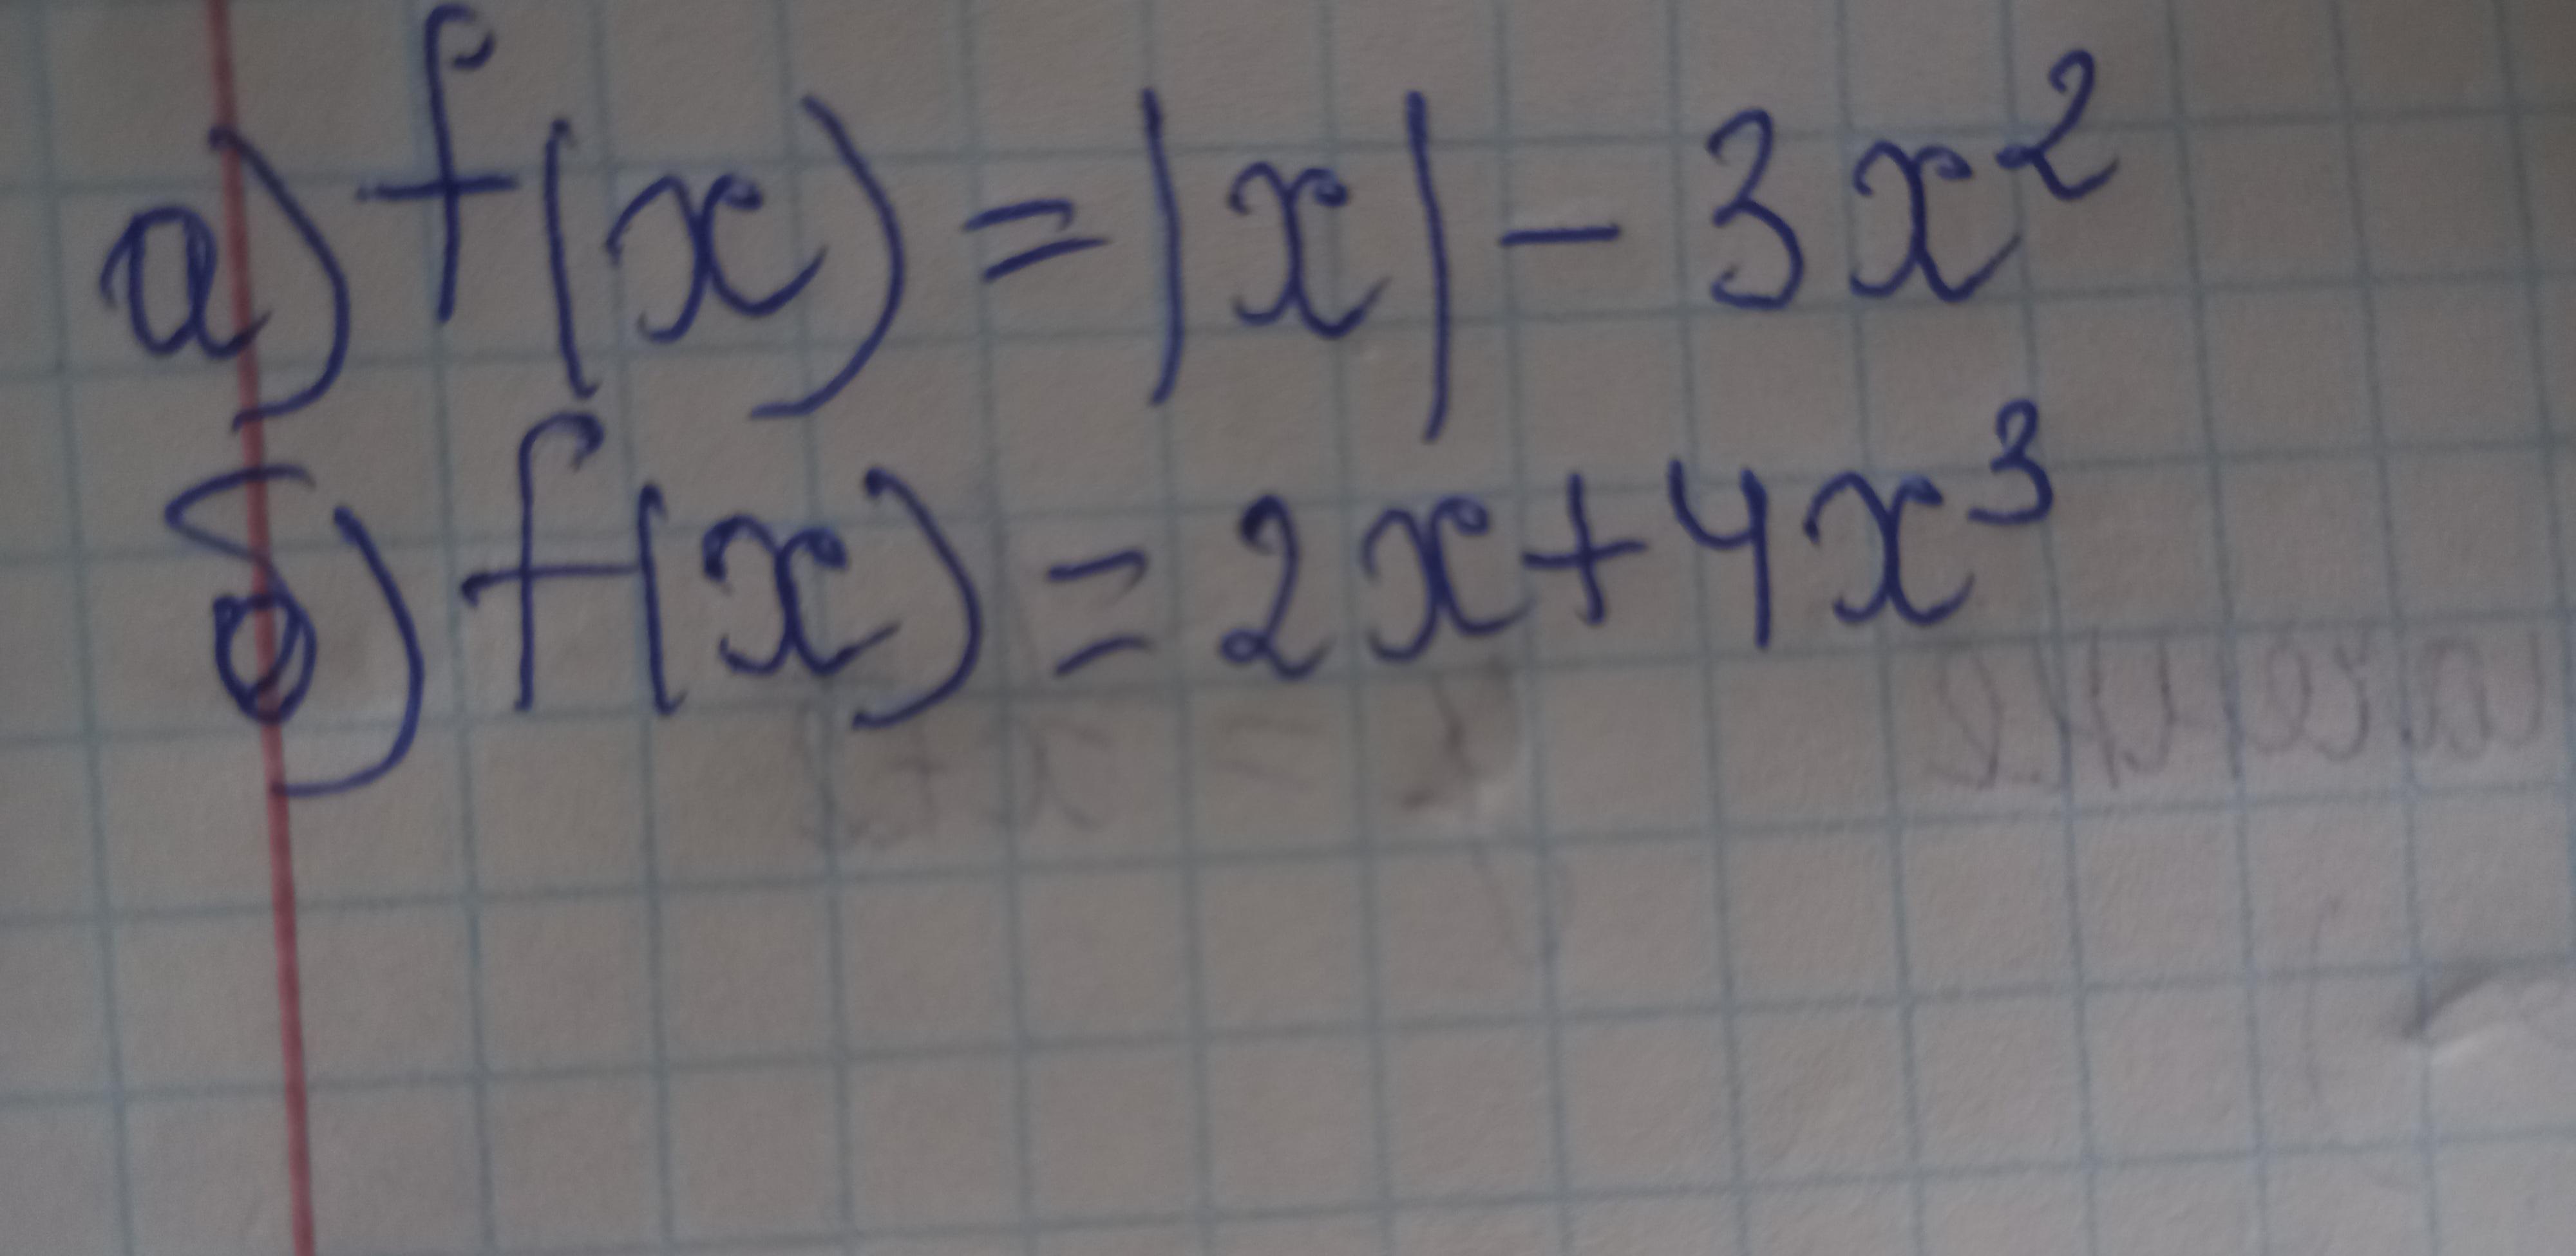 а) f(x) = |x| - 3x²
б) f(x) = 2x + 4x³